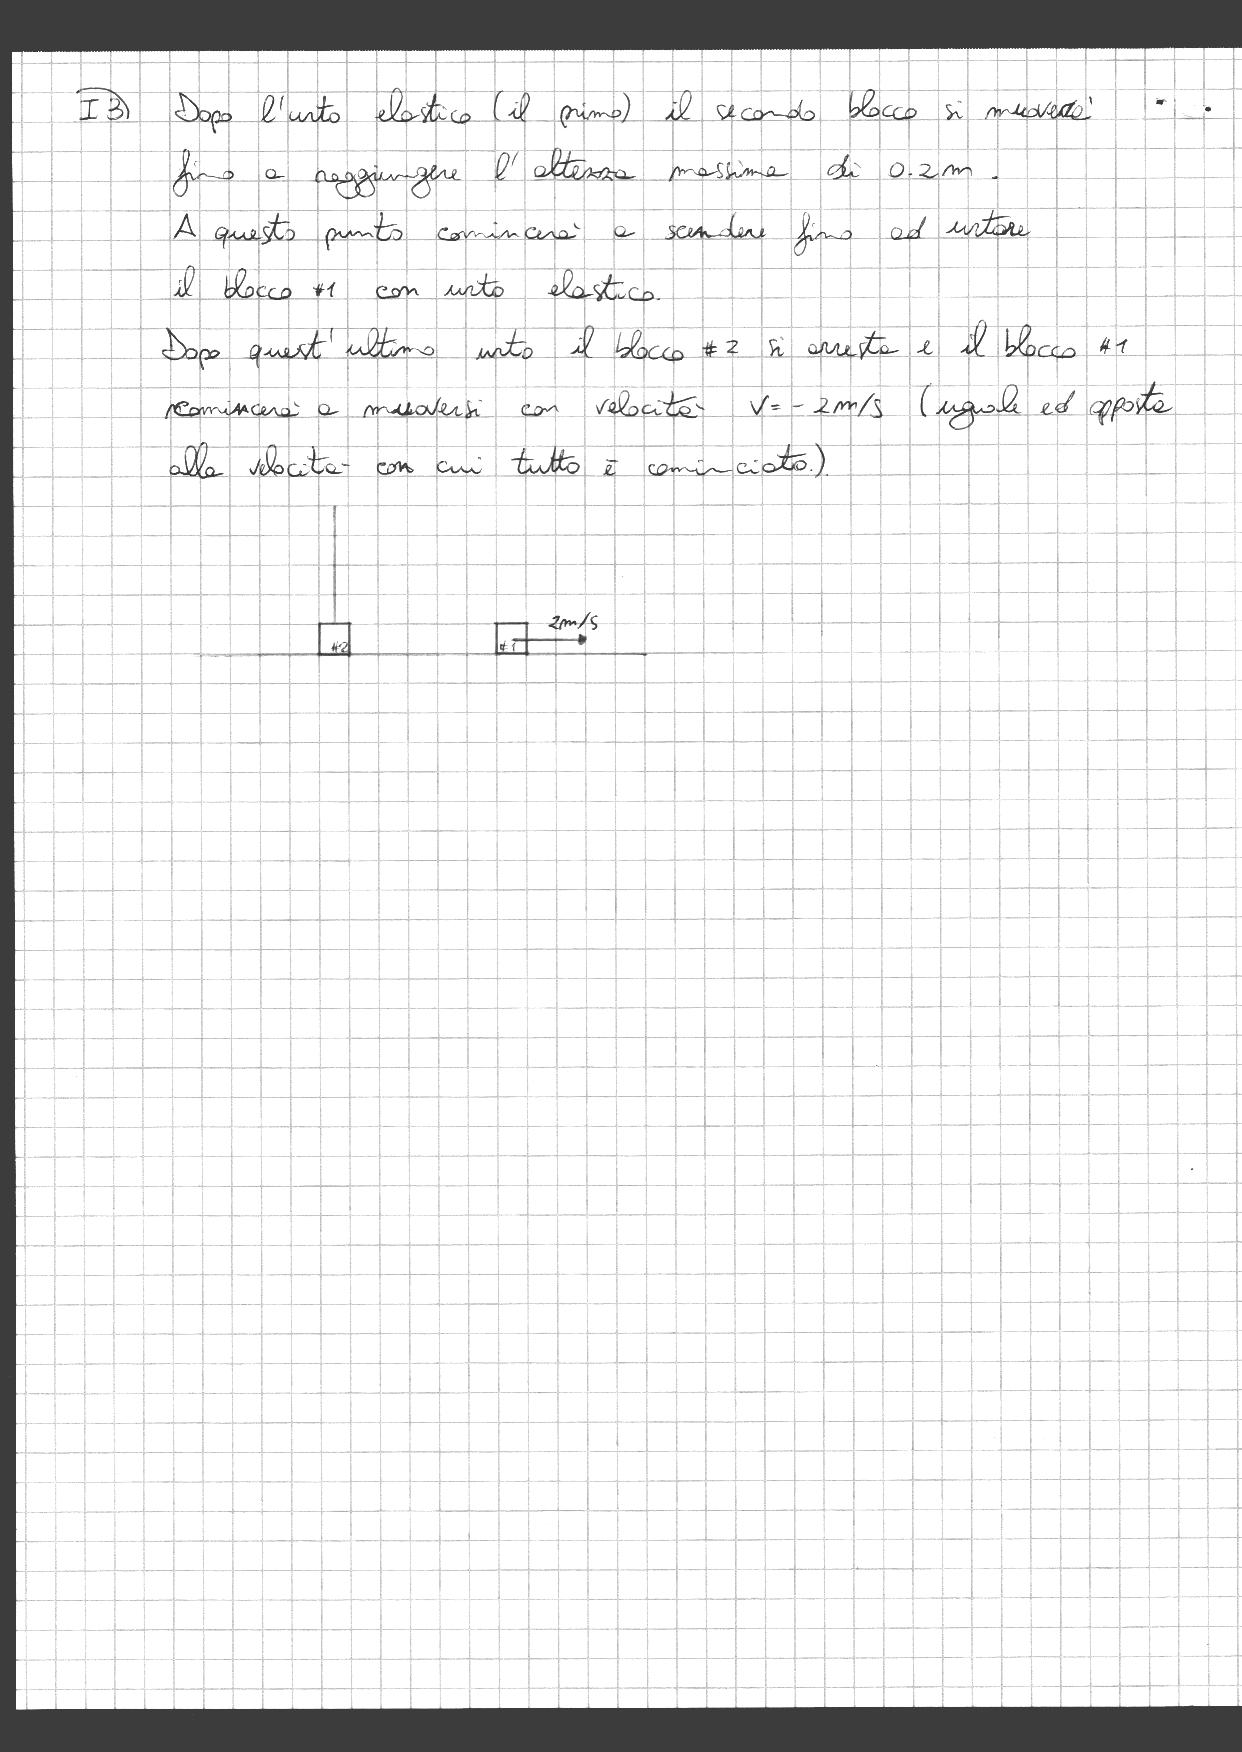 I3) Dopo l'urto elastico (il primo) il secondo blocco si muoverà
fino a raggiungere l'altezza massima di 0.2m.
A questo punto comincerà a scendere fino ad urtare
il blocco #1 con urto elastico.
Dopo quest'ultimo urto il blocco #2 si arresta e il blocco #1
comincerà a muoversi con velocità V=-2m/s (uguale ed opposta
alla velocità con cui tutto è cominciato.)
2m/s
#2 #1